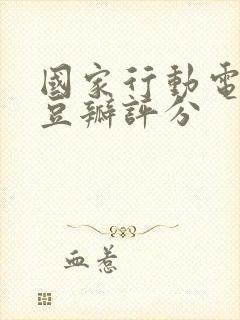 國家行動電
豆瓣評分
血惹